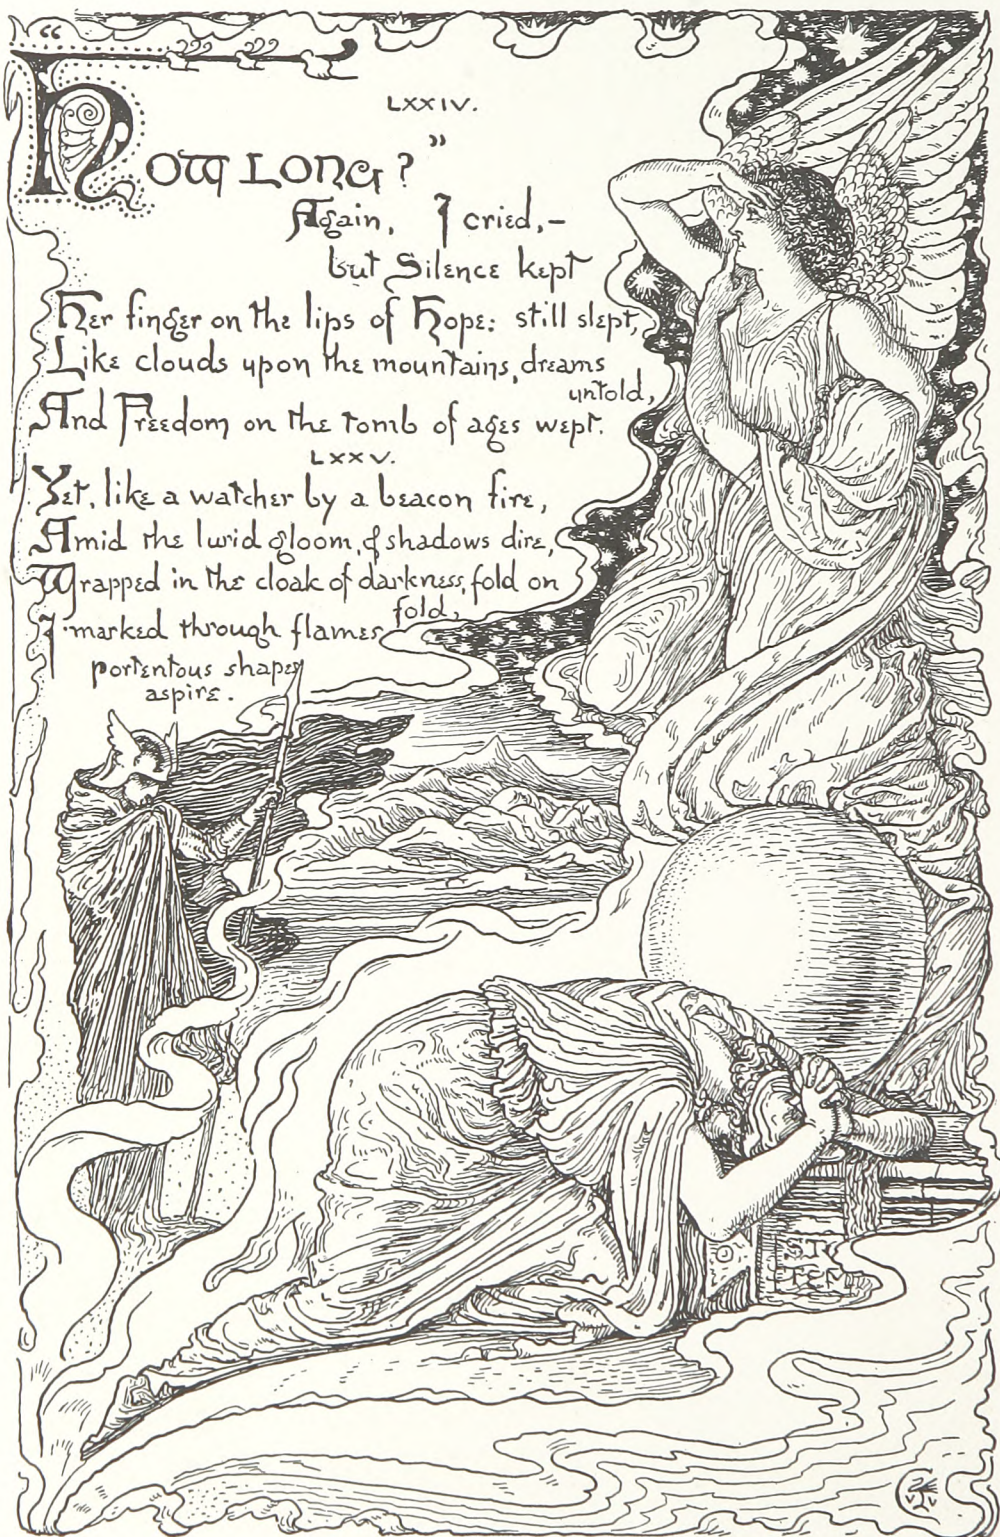 LXXIV.
"How Long?"
Again, I cried,—
but Silence kept
Her finger on the lips of Hope: still slept,
Like clouds upon the mountains, dreams
untold,
And Freedom on the tomb of ages wept.
LXXV.
Yet, like a watcher by a beacon fire,
Amid the lurid gloom, & shadows dire,
Wrapped in the cloak of darkness, fold on
fold,
I marked through flames
portentous shapes
aspire.